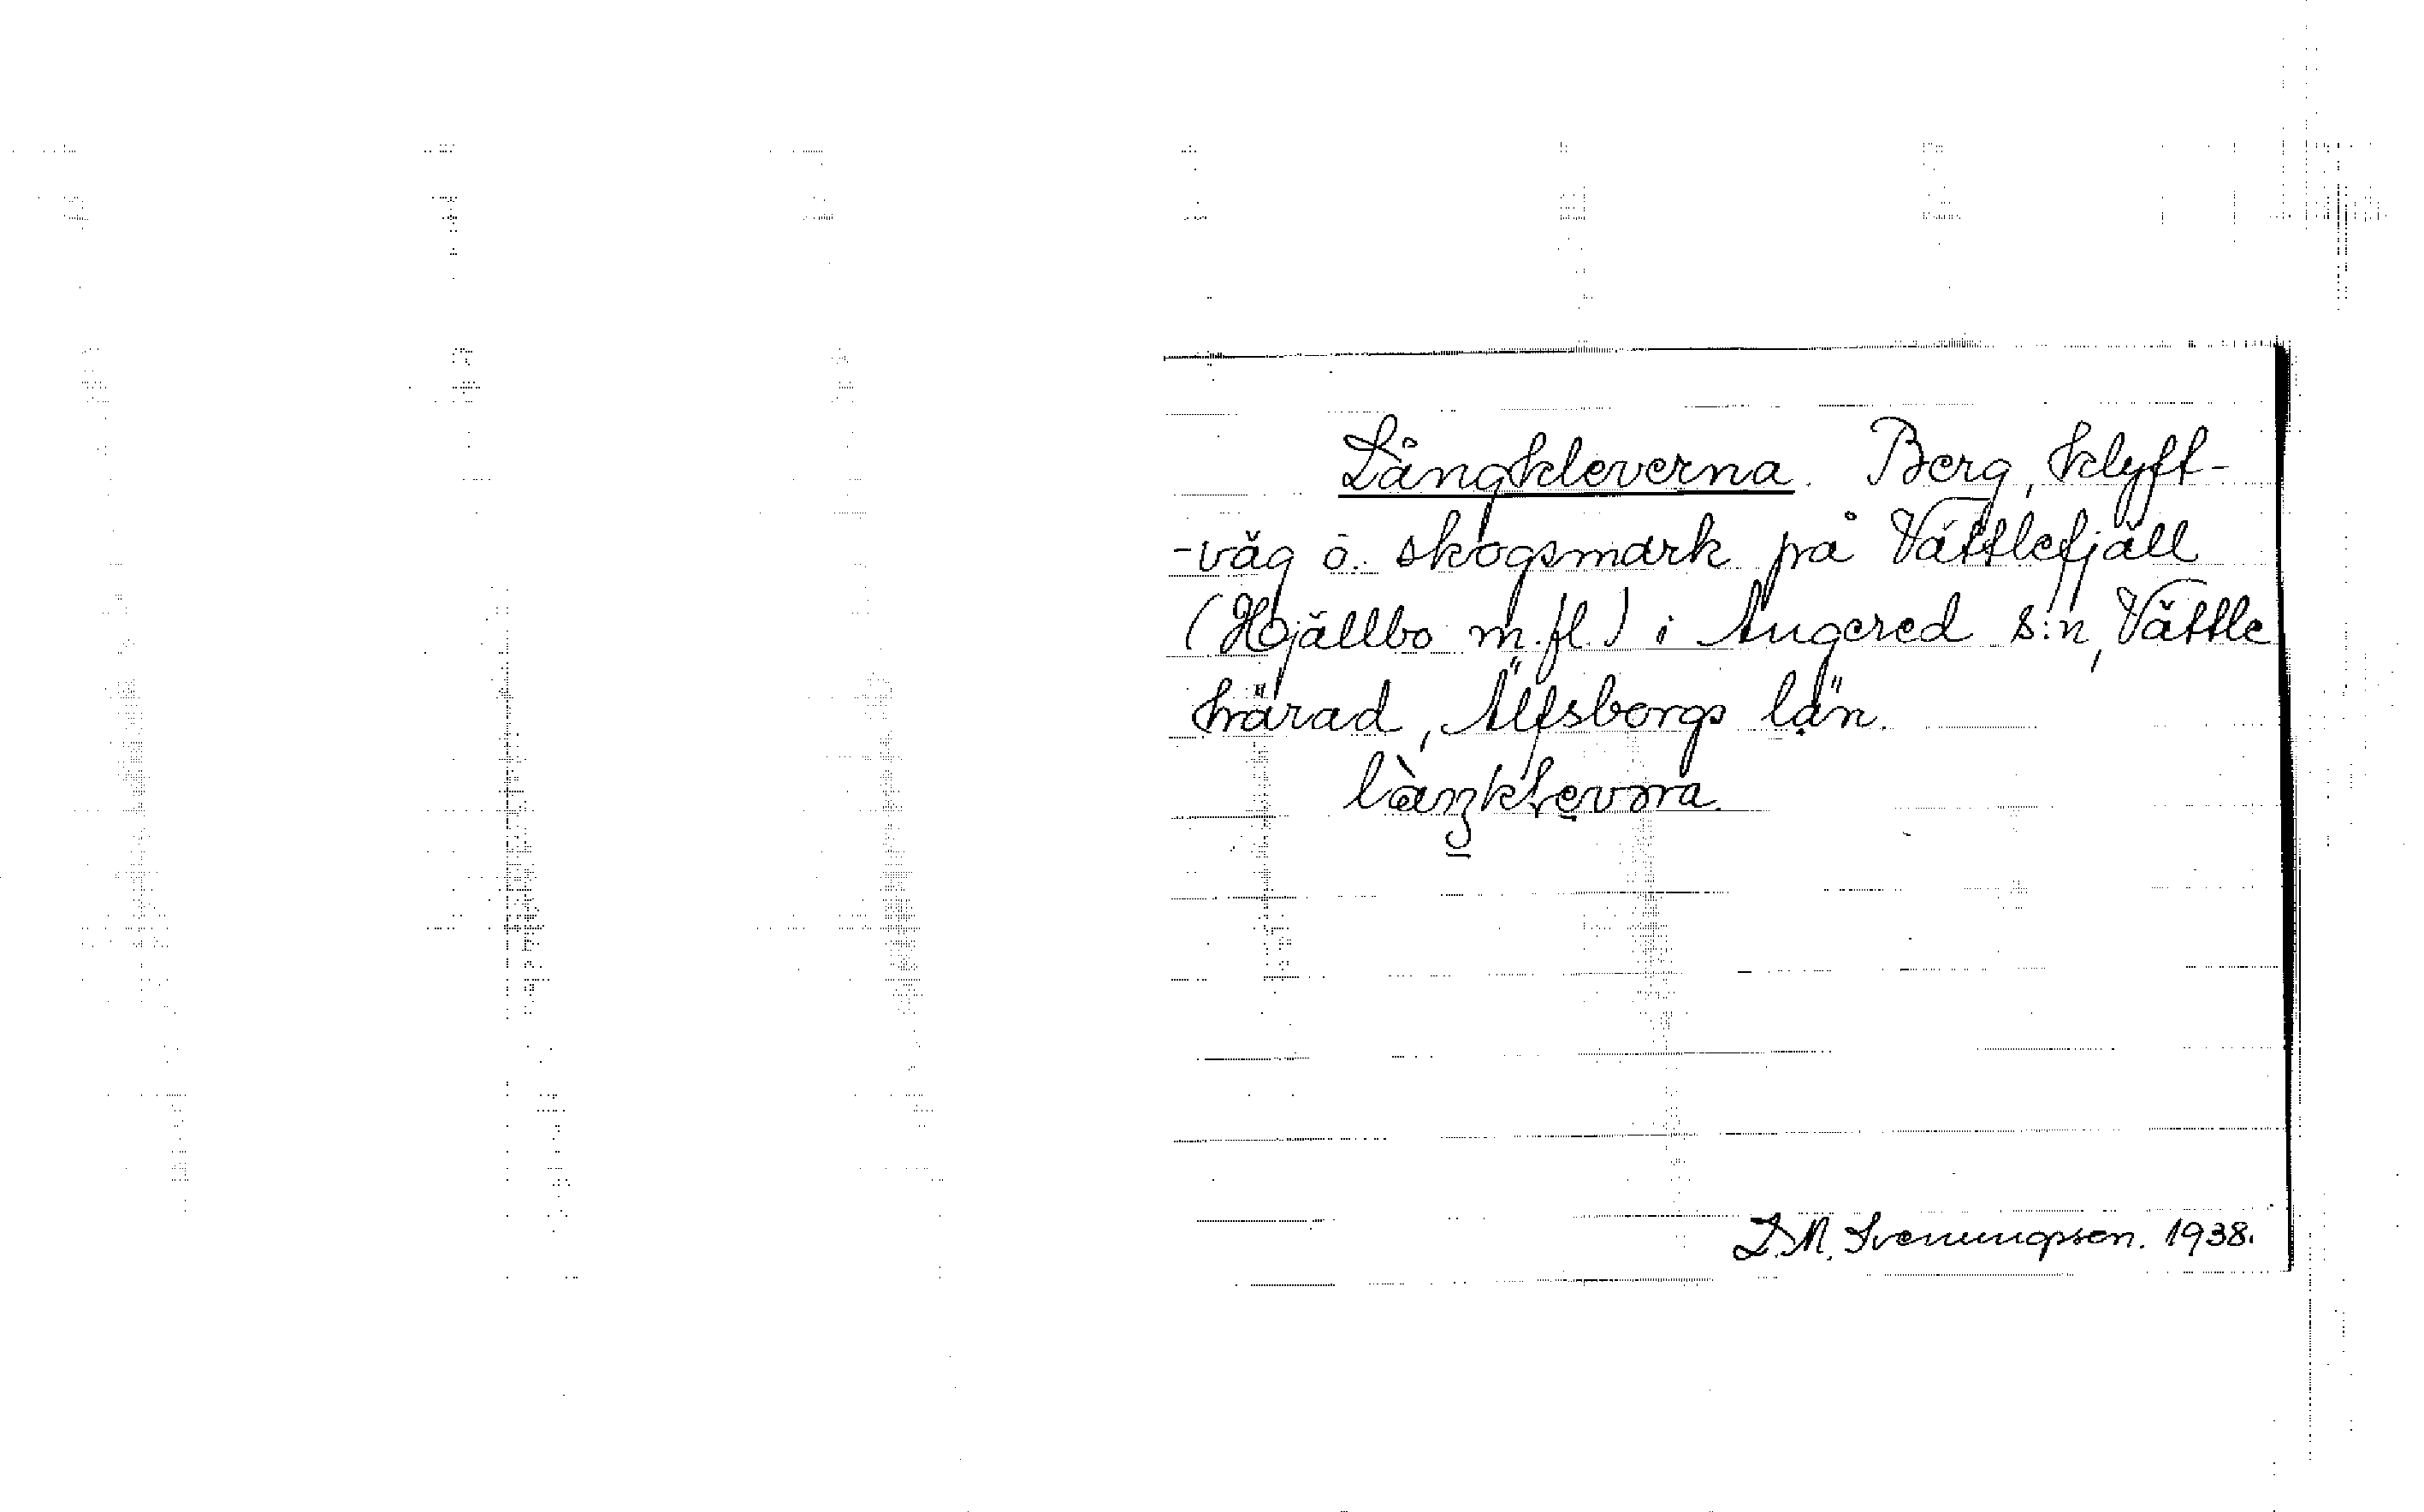 Långkleverna. Berg, klyft-
-väg o. skogsmark på Vättlefjäll
(Hjällbo m.fl.) i Angered s:n, Vättle
härad, Älfsborgs län.
L. M. Svenungsson. 1938.